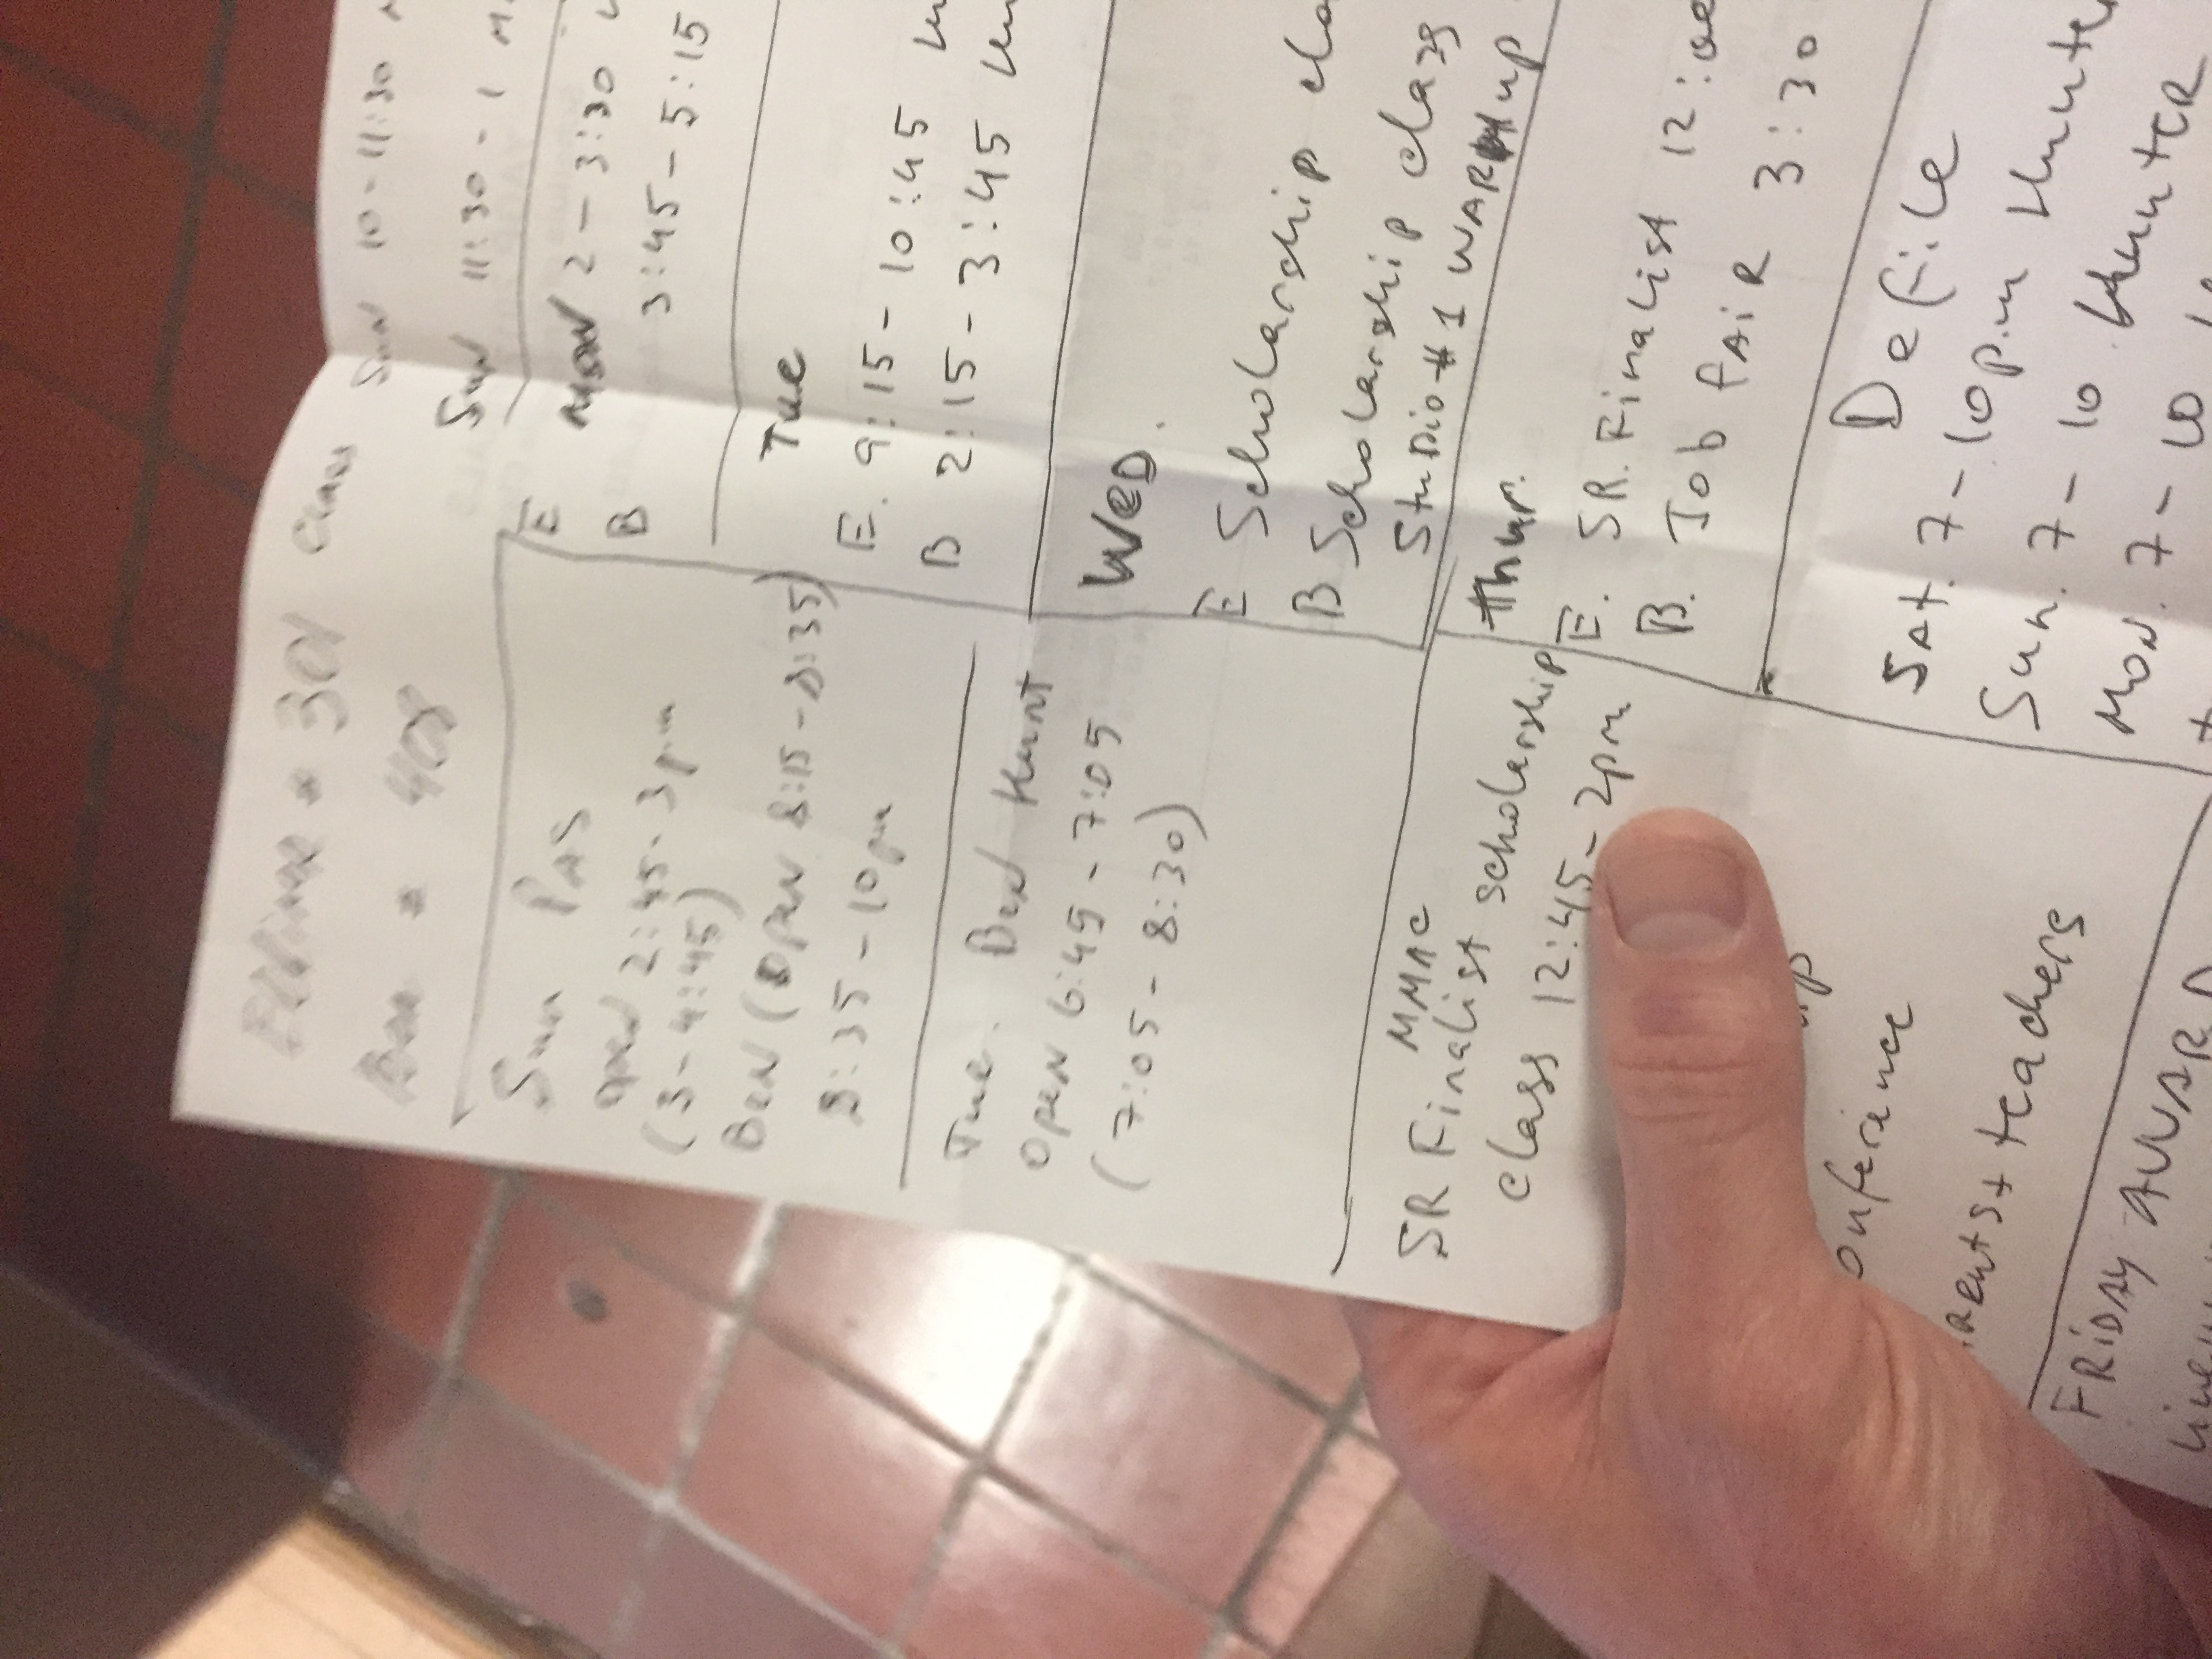 301
Ben # 408
Sun PAS
open 2:45-3pm
(3-4:45)
Ben (Open 8:15-8:35)
8:35-10pm
Tue. Ben Hunt
open 6:45-7:05
(7:05-8:30)
MMAC
SR Finalist scholarship
class 12:45-2pm
onference
rents + teachers
FRIDAY AWARD
Class Sun 10-11:30
Sun 11:30-1
E MON 2-3:30
B 3:45-5:15
Tue
E. 9:15-10:45
B 2:15-3:45
WED.
E Scholarship cla
B Scholarship class
Studio #1 WARM up
thur.
E. SR. Finalist 12:
B. Job fAiR 3:30
Defile
SAt. 7-10pm Hunter
Sun. 7-10 Hunter
MON. 7-10